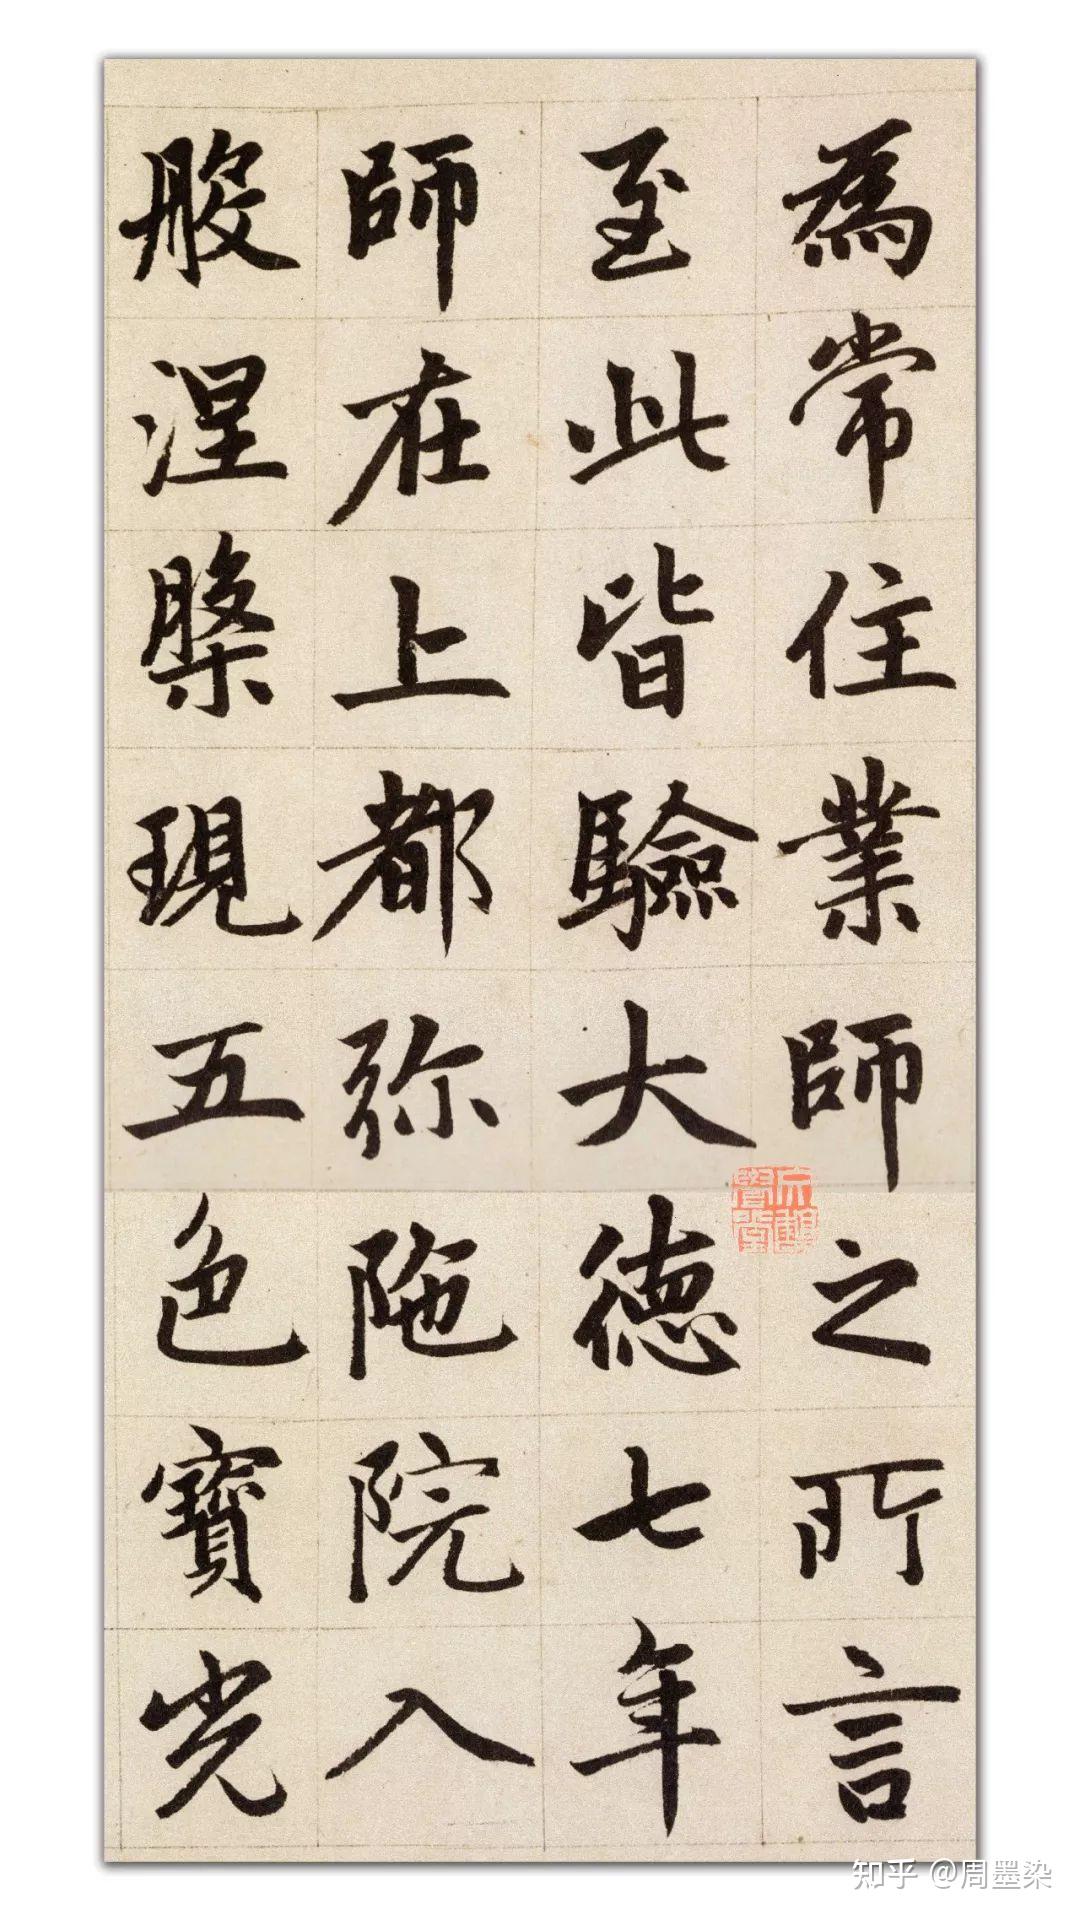 為常住業師之所言
至此皆驗大德七年
師在上都弥陁院入
般涅槃現五色寶光
知乎 @周墨染